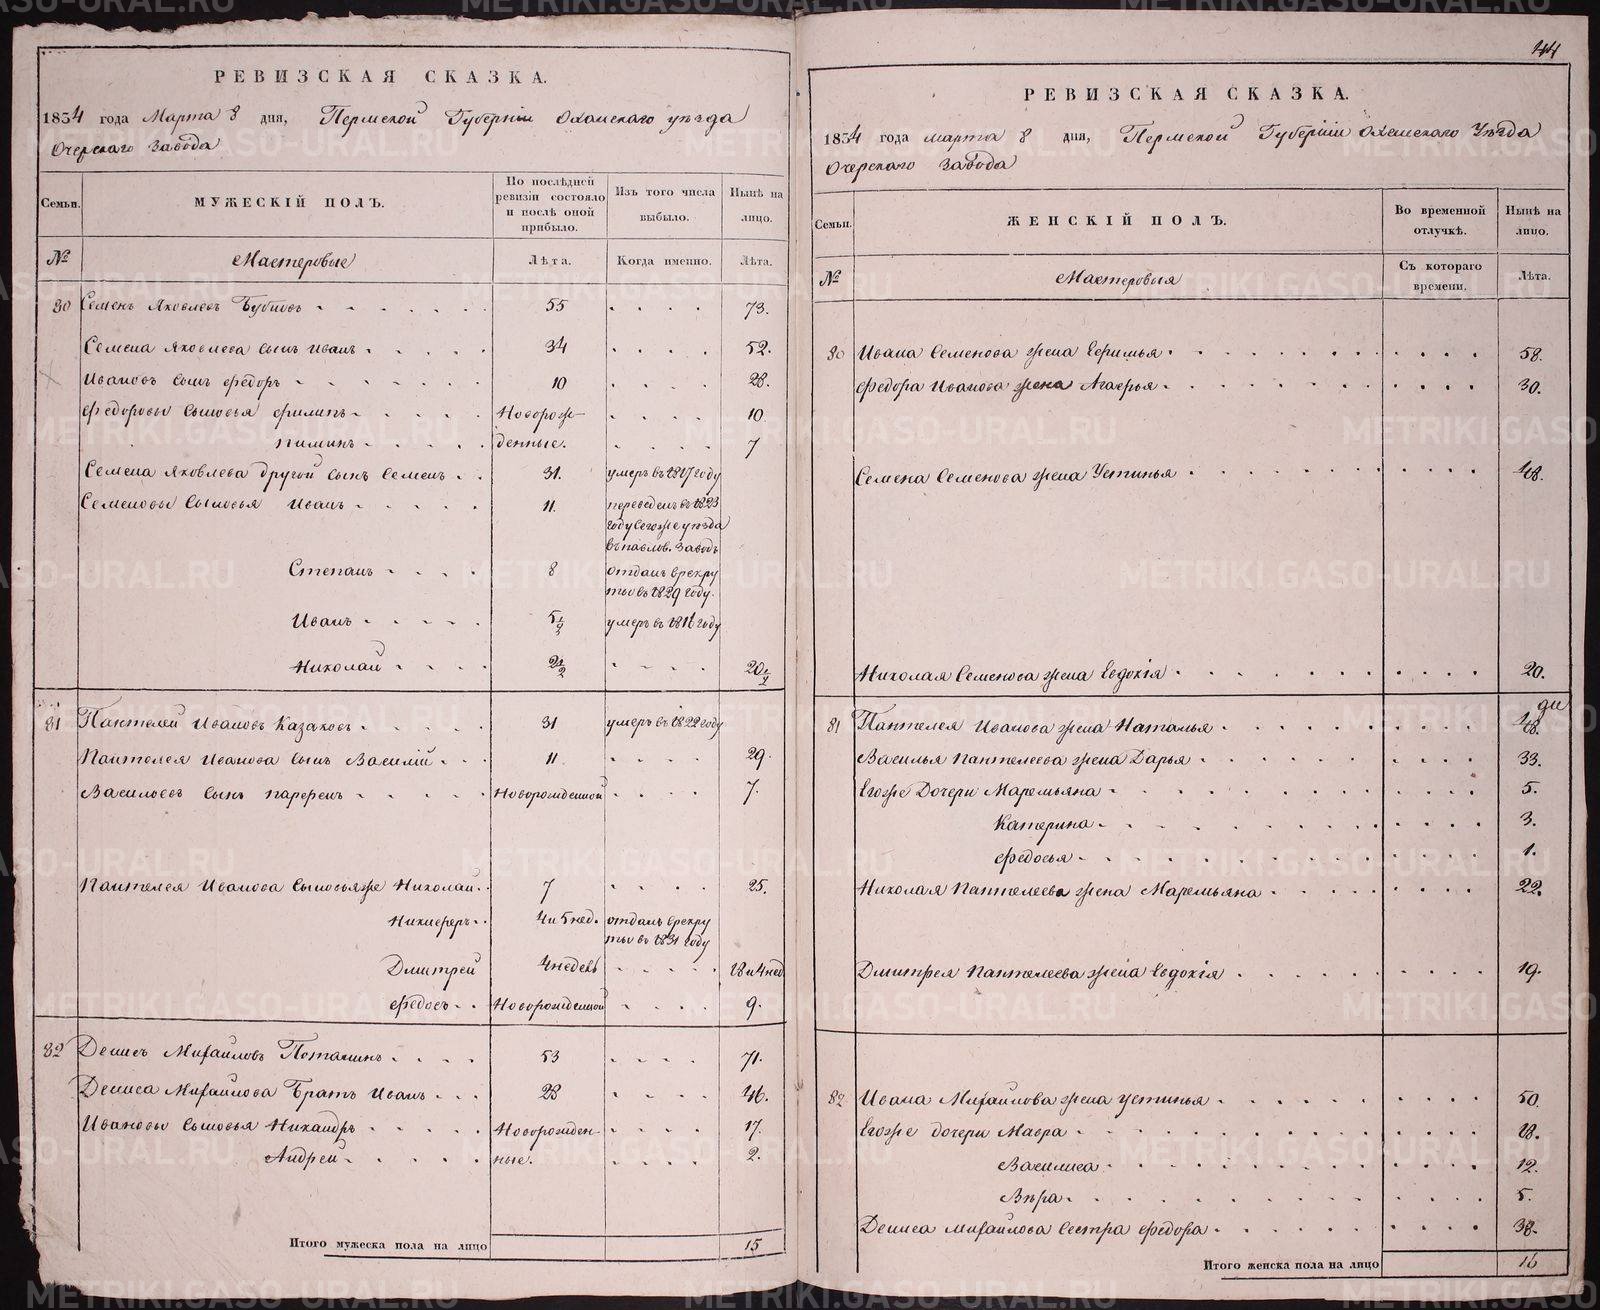 РЕВИЗСКАЯ СКАЗКА.
1834 года Марта 8 дня, Пермской Губернiи Оханскаго уѣзда
Очерскаго Завода
Семьи.
МУЖЕСКIЙ ПОЛЪ.
По послѣдней ревизiи состояло и послѣ оной прибыло.
Изъ того числа выбыло.
Нынѣ на лицо.
№
Мастеровые
Лѣта.
Когда именно.
Лѣта.
80 Семенъ Яковлевъ 55 73.
Семена Яковлева сынъ Иванъ 34 52.
Ивановъ сынъ Федоръ 10 28.
Федоровы сыновья Филипъ Новорож- 10
Пиминъ денные. 7
Семена Яковлева другой сынъ Семенъ 31. умеръ въ 1817 году
Семеновы сыновья Иванъ 11. переведенъ въ 1823
году сегоже уѣзда
въ павлов. заводъ
Степанъ 8 отданъ врекру
ты въ 1829 году.
Иванъ 5½ умеръ въ 1816 году
Николай 2½ 20½
81 Пантелей Ивановъ Казаковъ 31 умеръ въ 1822 году
Пантелея Иванова сынъ Василiй 11 29.
Васильевъ сынъ Парфенъ Новорожденной 7.
Пантелея Иванова сыновьяже Николай 7 25.
Никиферъ 4и5нед. отданъ врекру
ты въ 1831 году
Дмитрей 4недель 18и4нед
Федосъ Новорожденной 9.
82 Денисъ Михайловъ Потапинъ 53 71.
Дениса Михайлова Братъ Иванъ 28 46.
Ивановы сыновья Никандръ Новорожден- 17.
Андрей ные. 2.
Итого мужеска пола на лицо 15
44
РЕВИЗСКАЯ СКАЗКА.
1834 года марта 8 дня, Пермской Губернiи Оханскаго Уѣзда
Очерскаго Завода
Семьи.
ЖЕНСКIЙ ПОЛЪ.
Во временной отлучкѣ.
Нынѣ на лицо.
№
Мастеровыя
Съ котораго времени.
Лѣта.
80 Ивана Семенова жена Ефимья 58.
Федора Иванова жена Агафья 30.
Семена Семенова жена Устинья 48.
Николая Семенова жена Евдокiя 20.
81 Пантелея Иванова жена Наталья 48.
Василья Пантелеева жена Дарья 33.
Егоже Дочери Маремьяна 5.
Катерина 3.
Федосья 1.
Николая Пантелеева жена Маремьяна 22.
Дмитрея Пантелеева жена Евдокiя 19.
82 Ивана Михайлова жена Устинья 50.
Егоже дочери Мавра 18.
Василиса 12.
Вѣра 5.
Дениса Михайлова Сестра Федора 38.
Итого женска пола на лицо 16
METRIKI.GASO-URAL.RU